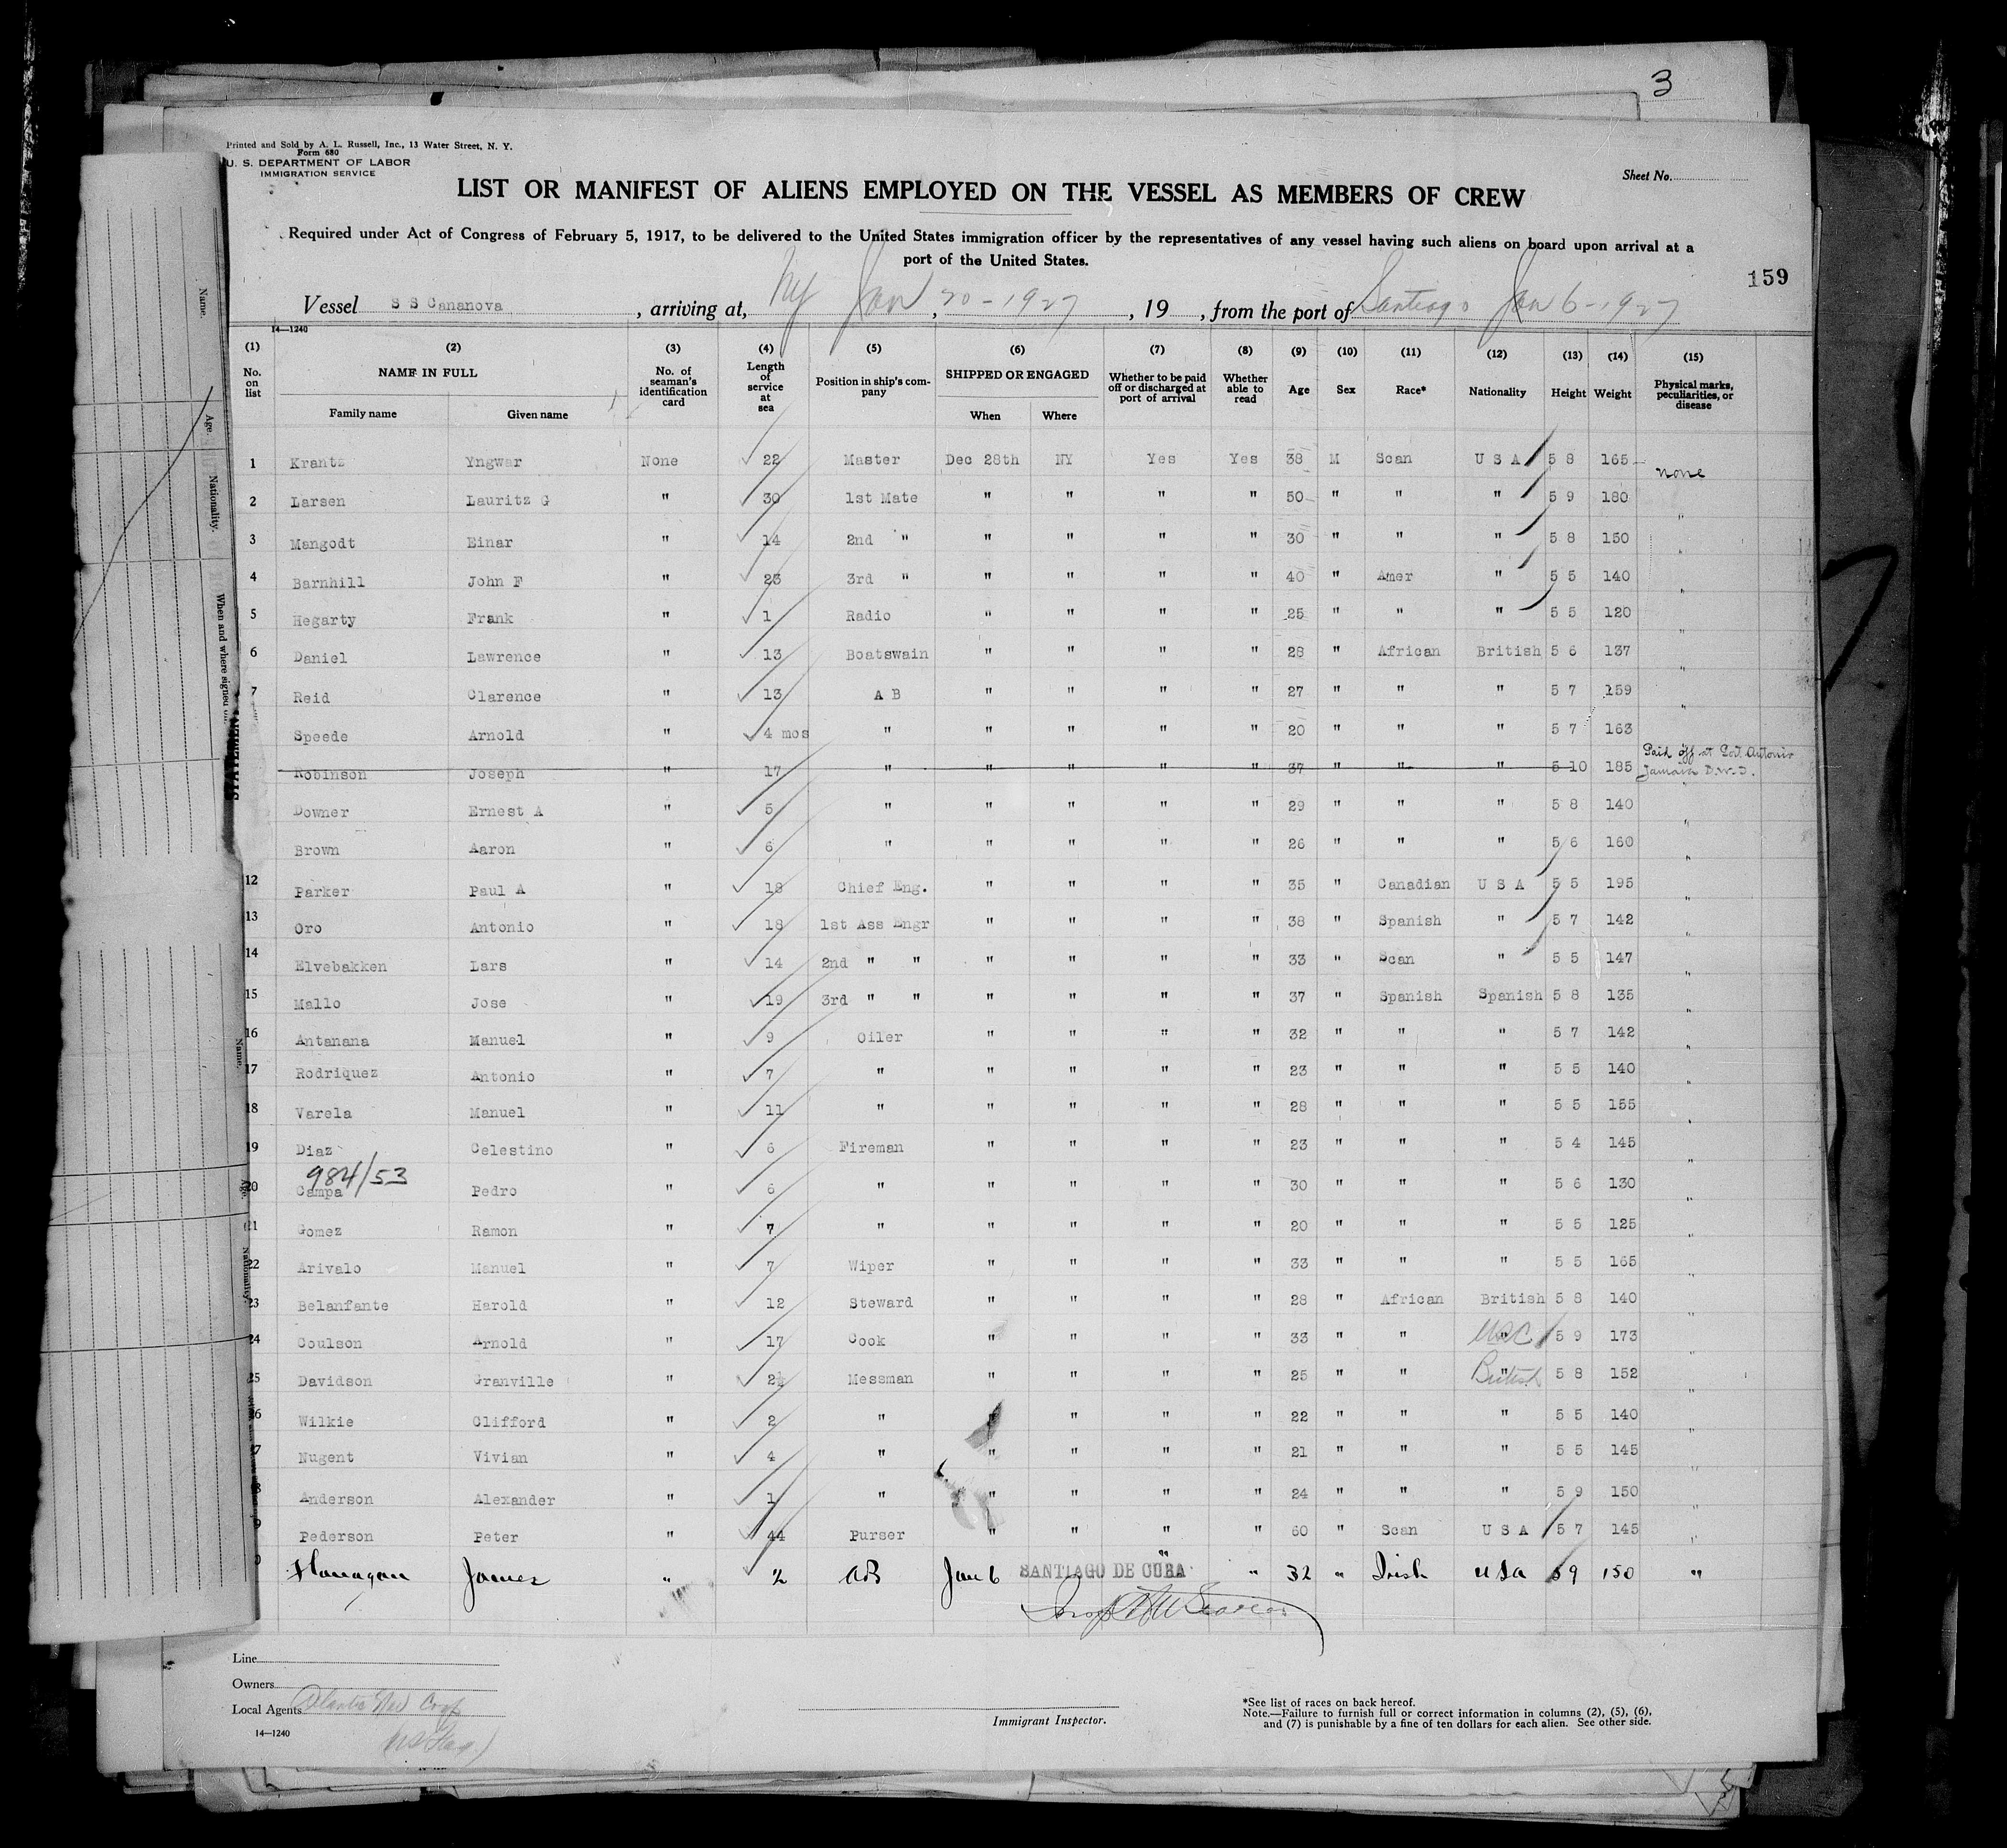 3
Printed and Sold by A. L. Russell, Inc., 13 Water Street, N. Y.
Form 680
U. S. DEPARTMENT OF LABOR
IMMIGRATION SERVICE
Sheet No.
LIST OR MANIFEST OF ALIENS EMPLOYED ON THE VESSEL AS MEMBERS OF CREW
Required under Act of Congress of February 5, 1917, to be delivered to the United States immigration officer by the representatives of any vessel having such aliens on board upon arrival at a
port of the United States.
159
Vessel S S Cananova, arriving at, NY Jan, 20-1927, 19, from the port of Santiago Jan 6-1927
14—1240
(1) (2) (3) (4) (5) (6) (7) (8) (9) (10) (11) (12) (13) (14) (15)
No. on list NAME IN FULL Family name Given name No. of seaman's identification card Length of service at sea Position in ship's company SHIPPED OR ENGAGED When Where Whether to be paid off or discharged at port of arrival Whether able to read Age Sex Race* Nationality Height Weight Physical marks, peculiarities, or disease
1 Krantz Yngwar None 22 Master Dec 28th NY Yes Yes 38 M Scan U S A 5 8 165 none
2 Larsen Lauritz G " 30 1st Mate " " " " 50 " " " 5 9 180 "
3 Mangodt Einar " 14 2nd " " " " " 30 " " " 5 8 150 "
4 Barnhill John F " 23 3rd " " " " " 40 " Amer " 5 5 140 "
5 Hegarty Frank " 1 Radio " " " " 25 " " " 5 5 120 "
6 Daniel Lawrence " 13 Boatswain " " " " 28 " African British 5 6 137 "
7 Reid Clarence " 13 A B " " " " 27 " " " 5 7 159 "
Speede Arnold " 4 mos " " " " " 20 " " " 5 7 163
Robinson Joseph " 17 " " " " " 37 " " " 5 10 185 Paid off at Port Antonio Jamaica
Downer Ernest A " 5 " " " " " 29 " " " 5 8 140 "
Brown Aaron " 6 " " " " " 26 " " " 5 6 160 "
12 Parker Paul A " 18 Chief Eng. " " " " 35 " Canadian U S A 5 5 195 "
13 Oro Antonio " 18 1st Ass Engr " " " " 38 " Spanish " 5 7 142 "
14 Elvebakken Lars " 14 2nd " " " " " " 33 " Scan " 5 5 147 "
15 Mallo Jose " 19 3rd " " " " " " 37 " Spanish Spanish 5 8 135 "
16 Antanana Manuel " 9 Oiler " " " " 32 " " " 5 7 142 "
17 Rodriquez Antonio " 7 " " " " " 23 " " " 5 5 140 "
18 Varela Manuel " 11 " " " " " 28 " " " 5 5 155 "
19 Diaz Celestino " 6 Fireman " " " " 23 " " " 5 4 145 "
984/53
20 Campa Pedro " 6 " " " " " 30 " " " 5 6 130 "
21 Gomez Ramon " 7 " " " " " 20 " " " 5 5 125 "
22 Arivalo Manuel " 7 Wiper " " " " 33 " " " 5 5 165 "
23 Belanfante Harold " 12 Steward " " " " 28 " African British 5 8 140 "
24 Coulson Arnold " 17 Cook " " " " 33 " " " 5 9 173 "
25 Davidson Granville " 2½ Messman " " " " 25 " " British 5 8 152 "
26 Wilkie Clifford " 2 " " " " " 22 " " " 5 5 140 "
7 Nugent Vivian " 4 " " " " " 21 " " " 5 5 145 "
8 Anderson Alexander " 1 " " " " " 24 " " " 5 9 150 "
9 Pederson Peter " 44 Purser " " " " 60 " Scan U S A 5 7 145 "
Flanagan James " 2 AB Jan 6 SANTIAGO DE CUBA " " 32 " Irish USA 5 9 150 "
Line
Owners
Local Agents Atlantic Nav Corp
14—1240
(US Flag)
Immigrant Inspector.
*See list of races on back hereof.
Note.—Failure to furnish full or correct information in columns (2), (5), (6),
and (7) is punishable by a fine of ten dollars for each alien. See other side.
Name.
Age.
Nationality.
When and where signed
STATEMENT
Name.
Age.
Nationality.